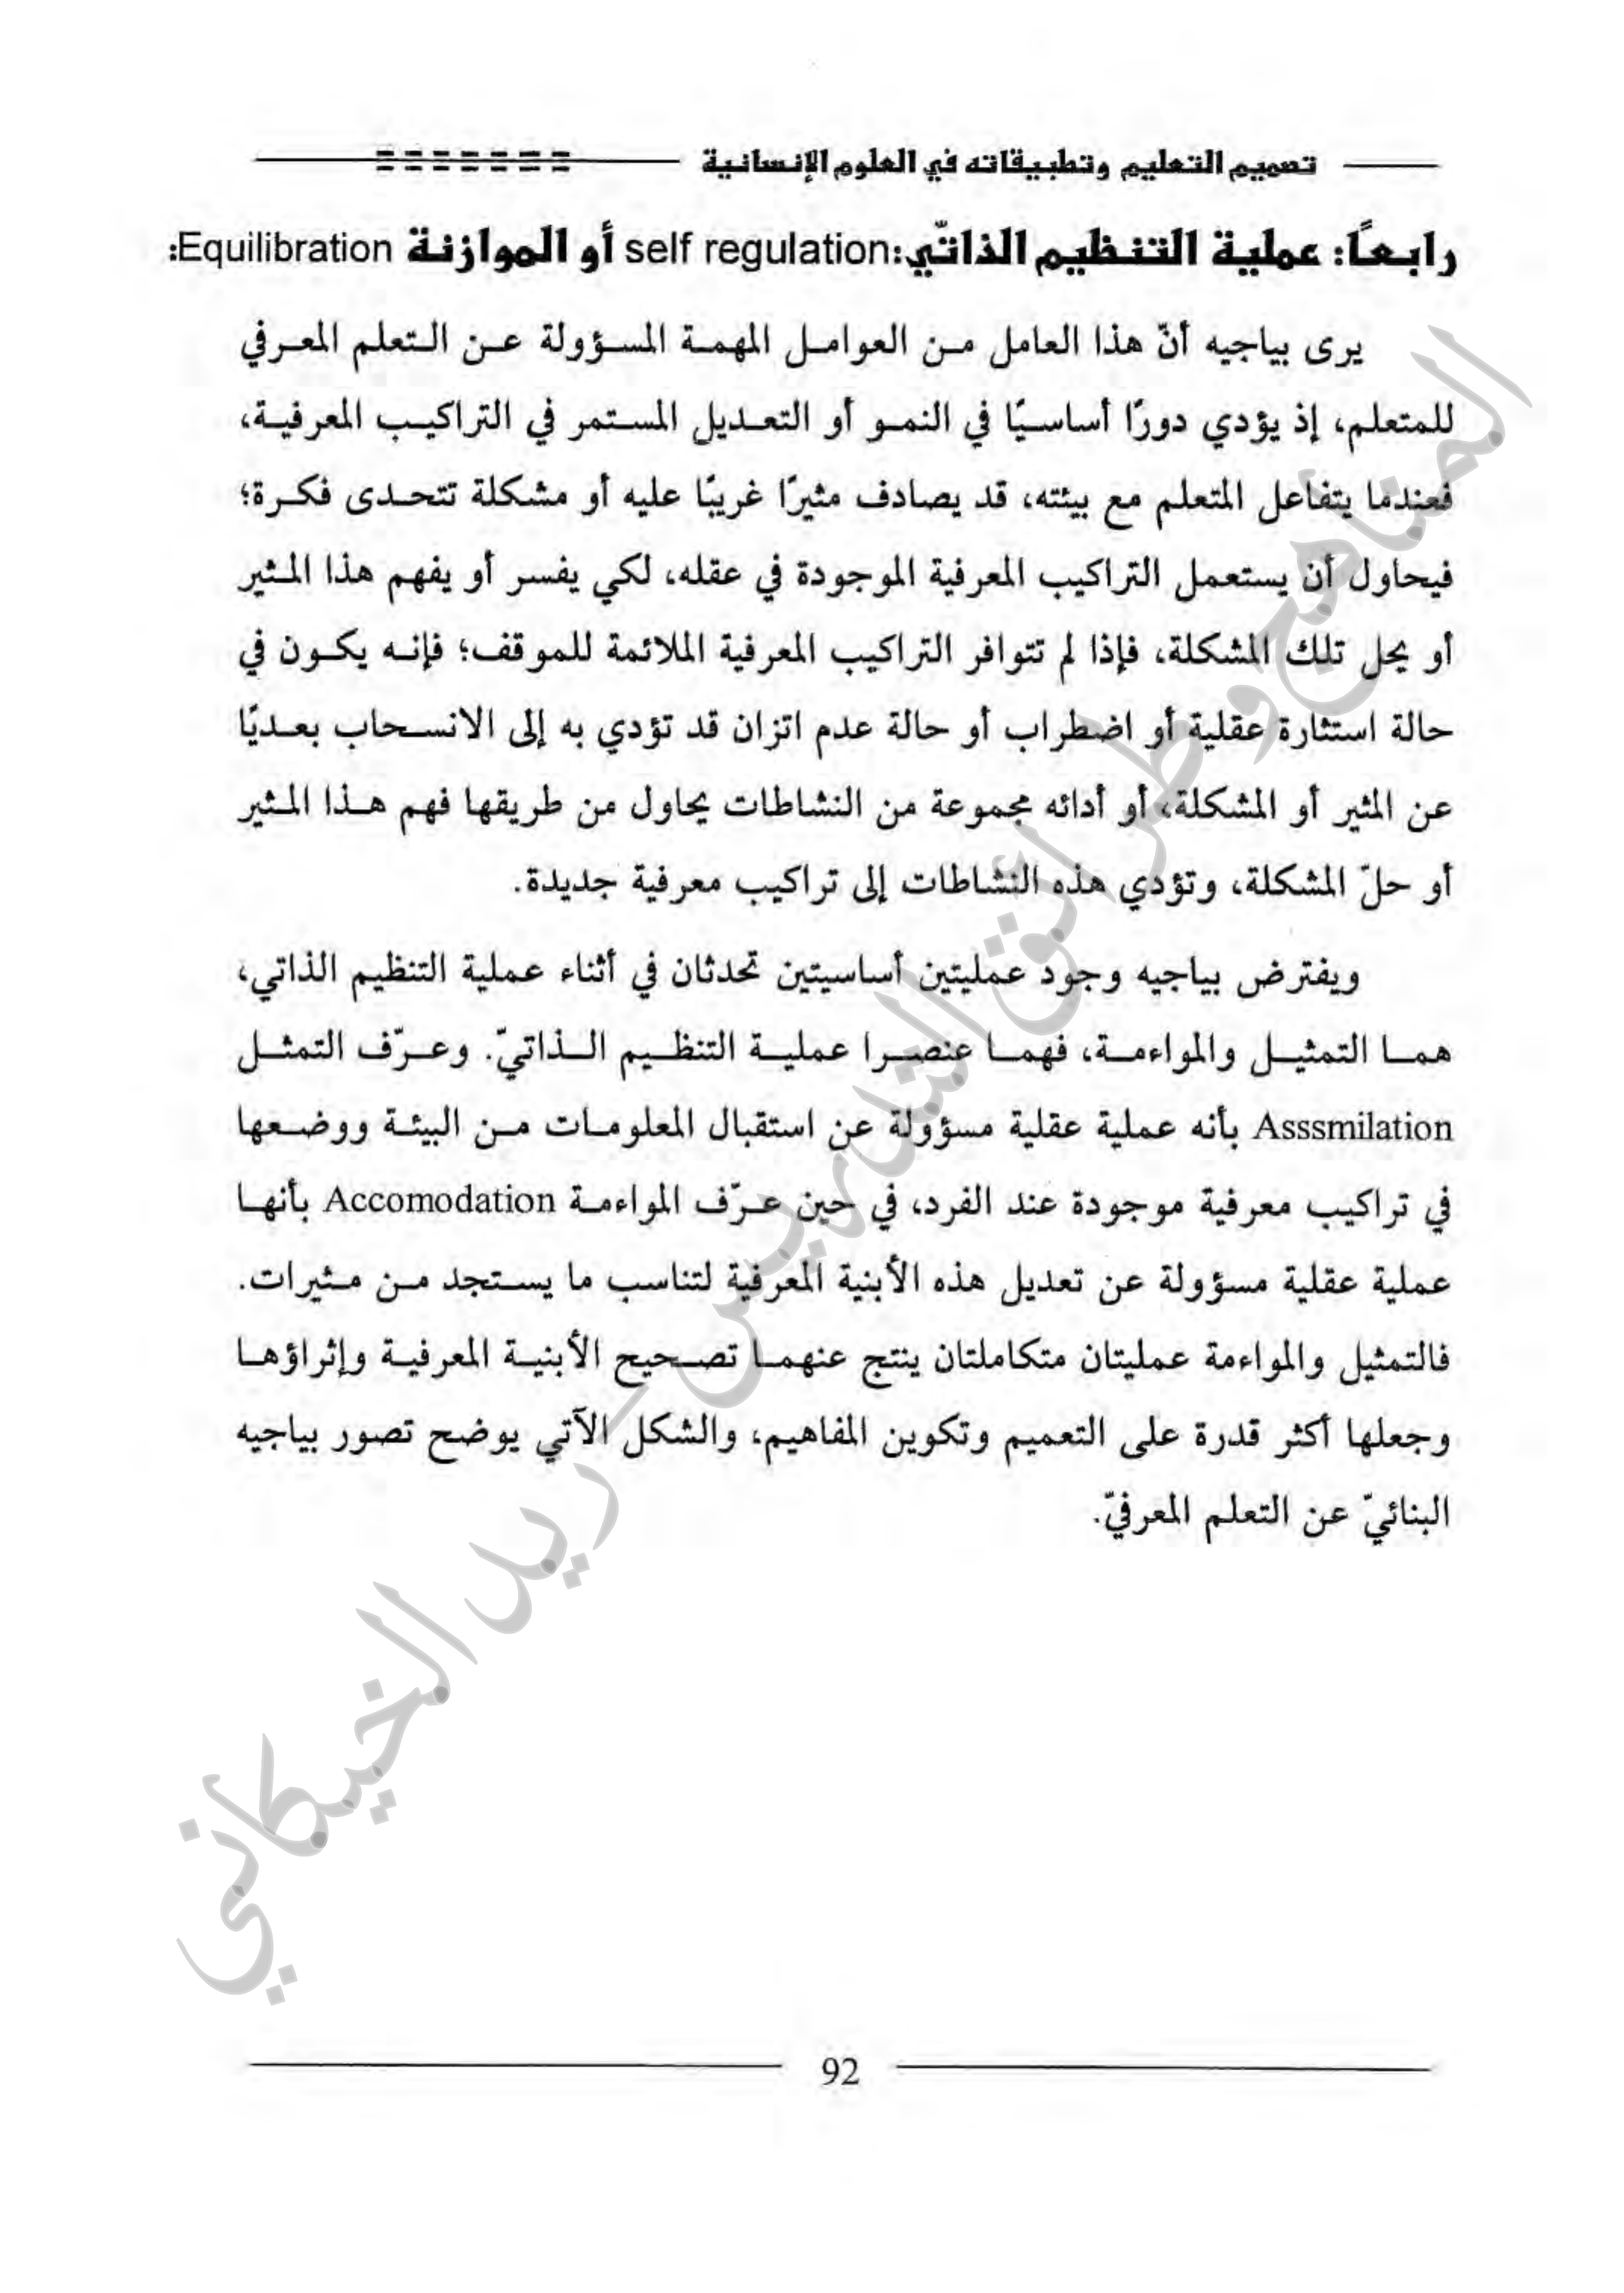 تصميم التعليم وتطبيقاته في العلوم الإنسانية
رابعًا: عملية التنظيم الذاتّي:self regulation أو الموازنة Equilibration:
يرى بياجيه أنّ هذا العامل من العوامل المهمة المسؤولة عن التعلم المعرفي
للمتعلم، إذ يؤدي دورًا أساسيًا في النمو أو التعديل المستمر في التراكيب المعرفية،
فعندما يتفاعل المتعلم مع بيئته، قد يصادف مثيرًا غريبًا عليه أو مشكلة تتحدى فكرة؛
فيحاول أن يستعمل التراكيب المعرفية الموجودة في عقله، لكي يفسر أو يفهم هذا المثير
أو يحل تلك المشكلة، فإذا لم تتوافر التراكيب المعرفية الملائمة للموقف؛ فإنه يكون في
حالة استثارة عقلية أو اضطراب أو حالة عدم اتزان قد تؤدي به إلى الانسحاب بعديًا
عن المثير أو المشكلة، أو أدائه مجموعة من النشاطات يحاول من طريقها فهم هذا المثير
أو حلّ المشكلة، وتؤدي هذه النشاطات إلى تراكيب معرفية جديدة.
ويفترض بياجيه وجود عمليتين أساسيتين تحدثان في أثناء عملية التنظيم الذاتي،
هما التمثيل والمواءمة، فهما عنصرا عملية التنظيم الذاتيّ. وعرّف التمثل
Asssmilation بأنه عملية عقلية مسؤولة عن استقبال المعلومات من البيئة ووضعها
في تراكيب معرفية موجودة عند الفرد، في حين عرّف المواءمة Accomodation بأنها
عملية عقلية مسؤولة عن تعديل هذه الأبنية المعرفية لتناسب ما يستجد من مثيرات.
فالتمثيل والمواءمة عمليتان متكاملتان ينتج عنهما تصحيح الأبنية المعرفية وإثراؤها
وجعلها أكثر قدرة على التعميم وتكوين المفاهيم، والشكل الآتي يوضح تصور بياجيه
البنائيّ عن التعلم المعرفيّ.
المناهج وطرائق التدريس - ريد الخيكاني
92